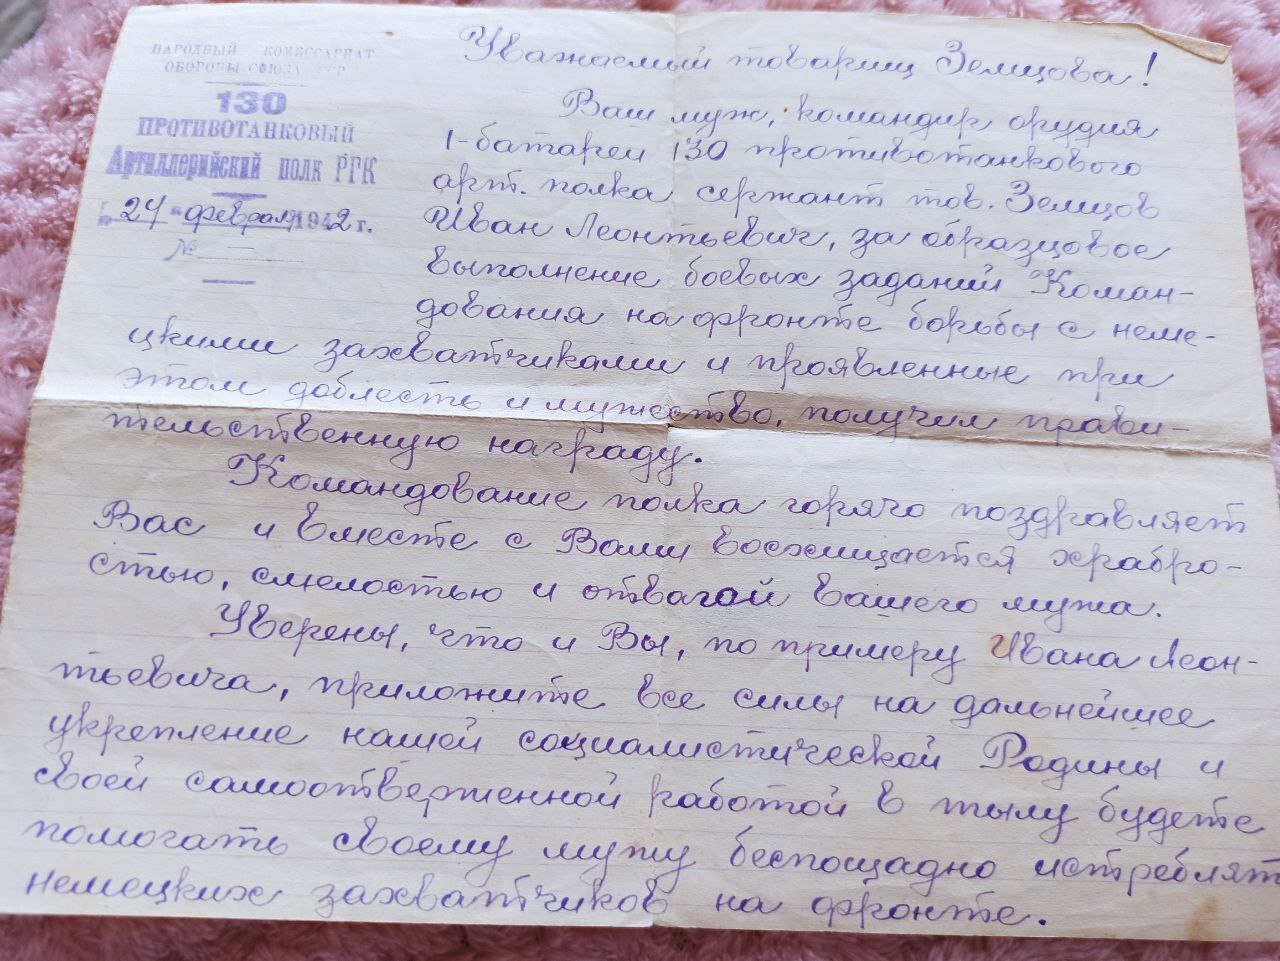 НАРОДНЫЙ КОМИССАРИАТ
ОБОРОНЫ СОЮЗА ССР
130
ПРОТИВОТАНКОВЫЙ
Артиллерийский полк РГК
"24" февраля 1942 г.
№ —
Уважаемый товарищ Земцова!
Ваш муж, командир орудия
1-батареи 130 противотанкового
арт. полка сержант тов. Земцов
Иван Леонтьевич, за образцовое
выполнение боевых заданий Коман-
дования на фронте борьбы с неме-
цкими захватчиками и проявленные при
этом доблесть и мужество, получил прави-
тельственную награду.
Командование полка горячо поздравляет
Вас и вместе с Вами восхищается храбро-
стью, смелостью и отвагой Вашего мужа.
Уверены, что и Вы, по примеру Ивана Леон-
тьевича, приложите все силы на дальнейшее
укрепление нашей социалистической Родины и
своей самоотверженной работой в тылу будете
помогать своему мужу беспощадно истреблят
немецких захватчиков на фронте.